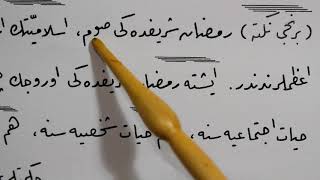 (برنجی نكته) رمضان شریفده كی صوم، اسلامیتك
اعظملرندندر. ایشته رمضان كی اوروجك
حیات اجتماعیه سنه، حیات شخصیه سنه، هم